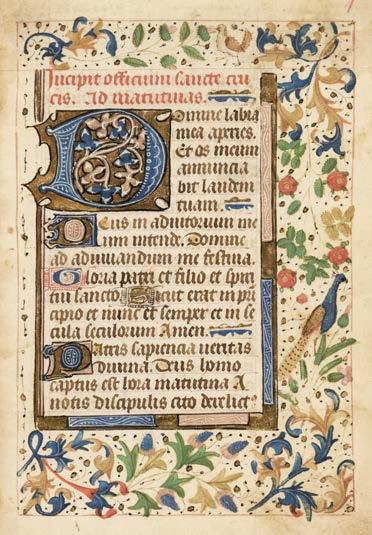 Incipit officium sancte cru
cis. Ad matutinas.
Domine labia
mea aperies.
Et os meum
annuncia
bit laudem
tuam.
Deus in adiutorium me
um intende. Domine
ad adiuvandum me festina.
Gloria patri et filio et spiri
tui sancto. Sicut erat in pri
cipio et nunc et semper et in se
cula seculorum Amen.
Patris sapiencia veritas
divina. Deus homo
captus est hora matutina A
notis discipulis cito